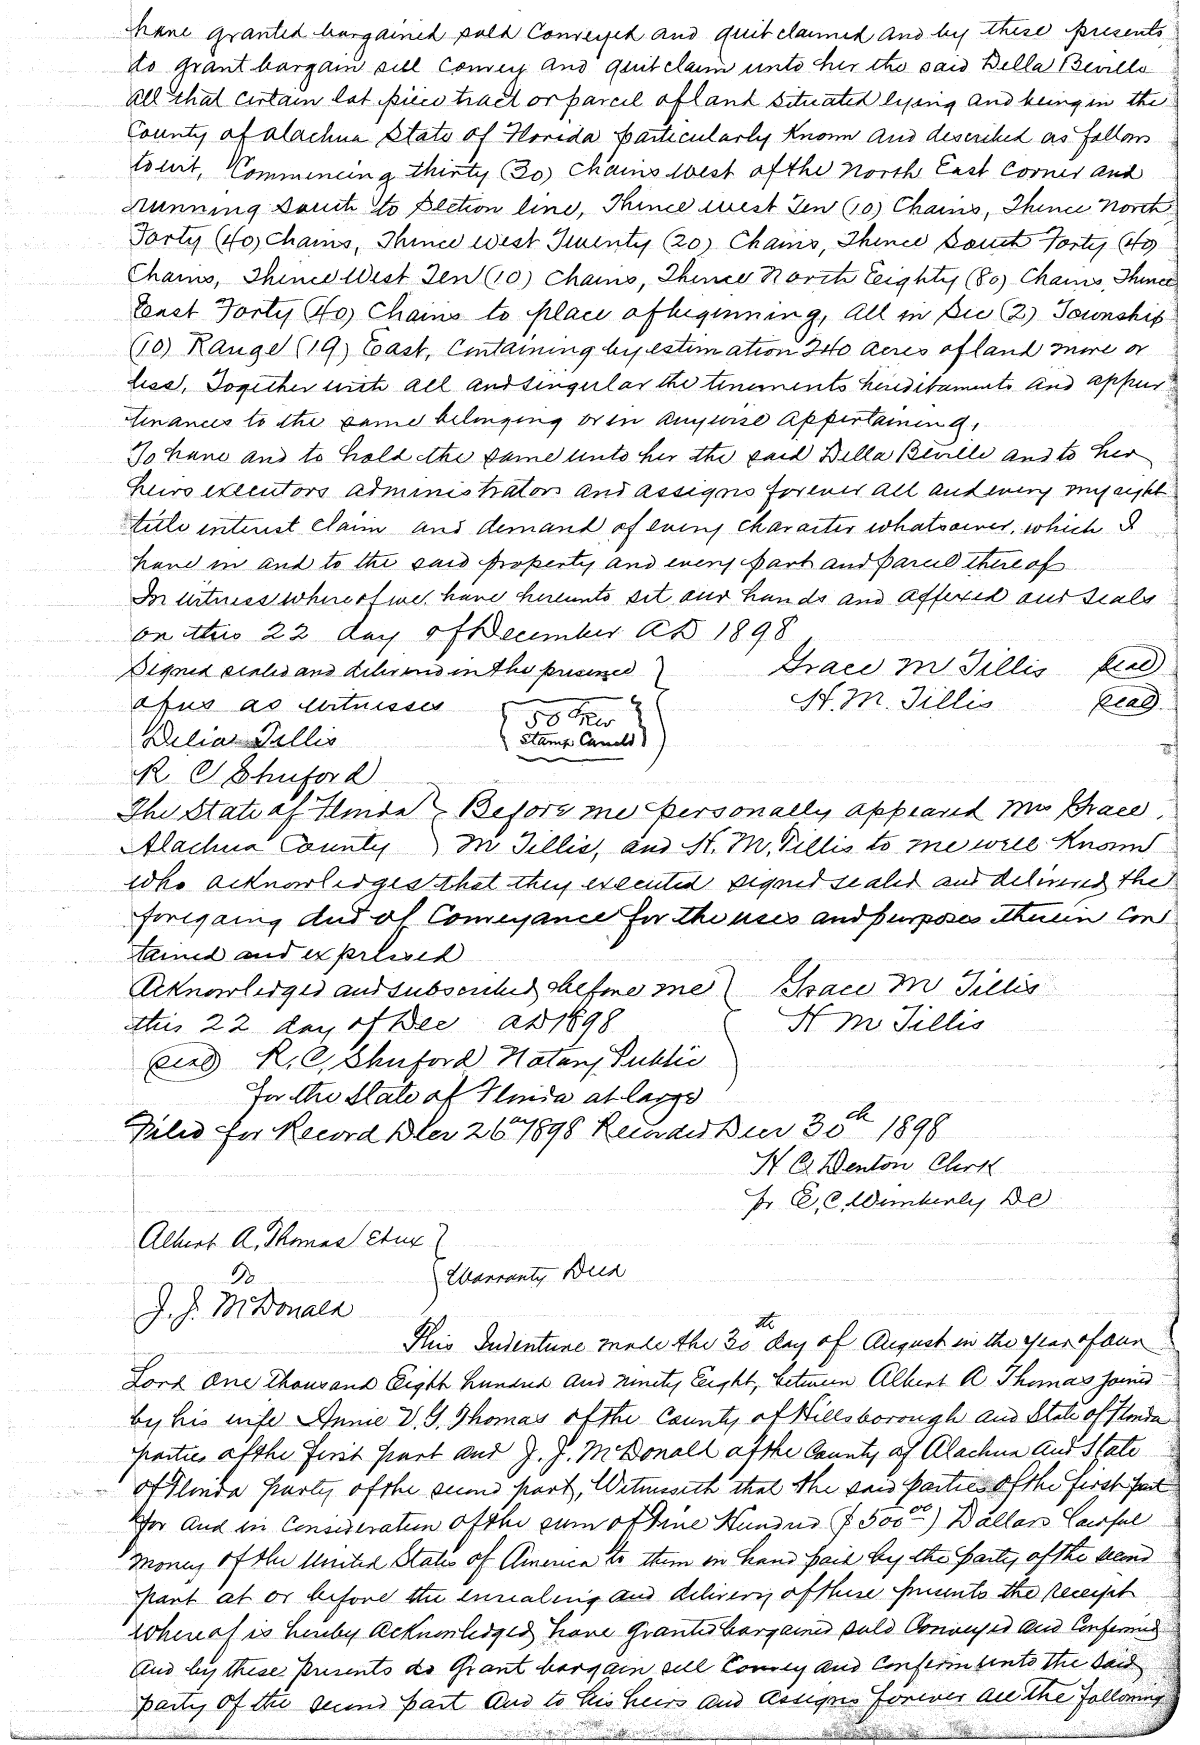 have granted bargained sold Conveyed and quit claimed and by these presents
do grant bargain sell Convey and quit claim unto her the said Della Beville
all that certain lot piece tract or parcel of land situated lying and being in the
County of Alachua State of Florida particularly Known and described as follows
to wit, Commencing thirty (30) Chains West of the North East Corner and
running South to Section line, Thence west Ten (10) Chains, Thence North
Forty (40) Chains, Thence west Twenty (20) Chains, Thence South Forty (40)
Chains, Thence West Ten (10) Chains, Thence North Eighty (80) Chains, Thence
East Forty (40) Chains to place of beginning, all in Sec (2) Township
(10) Range (19) East, Containing by estimation 240 acres of land more or
less, Together with all and singular the tenements hereditaments and appur
tenances to the same belonging or in anywise appertaining,
To have and to hold the same unto her the said Della Beville and to her
heirs executors administrators and assigns forever all and every my right
title interest claim and demand of every Character whatsoever, which I
have in and to the said property and every part and parcel thereof
In witness whereof we have hereunto set our hands and affixed our Seals
on this 22 day of December AD 1898
Signed sealed and delivered in the presence } Grace M Tillis seal
of us as witnesses H. M. Tillis seal
{50¢ Rev
Stamp Canceld}
Delia Tillis
R C Shuford
The State of Florida } Before me personally appeared Mrs Grace
Alachua County } M Tillis, and H. M. Tillis to me well Known
who acknowledges that they executed signed sealed and delivered the
foregoing deed of Conveyance for the uses and purposes therein Con
tained and expressed
Acknowledged and subscribed before me { Grace M Tillis
this 22 day of Dec AD 1898 H M Tillis
seal R. C. Shuford Notary Public
for the State of Florida at large
Filed for Record Dec 26th 1898 Recorded Decr 30th 1898
H C Denton Clerk
Pr E. C. Wimberly DC
Albert A. Thomas et ux }
To { Warranty Deed
J. J. McDonald
This Indenture made the 30th day of August in the year of our
Lord One thousand Eight hundred and ninety Eight, between Albert A Thomas joined
by his wife Annie V. G. Thomas of the County of Hillsborough and State of Florida
parties of the first part and J. J. McDonald of the County of Alachua and State
of Florida party of the second part, Witnesseth that the said parties of the first part
for and in Consideration of the sum of Five Hundred ($500.00) Dollars lawful
money of the United States of America to them in hand paid by the party of the second
part at or before the ensealing and delivery of these presents the receipt
whereof is hereby acknowledged have granted bargained sold Conveyed and Confirmed
and by these presents do Grant bargain sell Convey and Confirm unto the said
party of the second part and to his heirs and assigns forever all the following